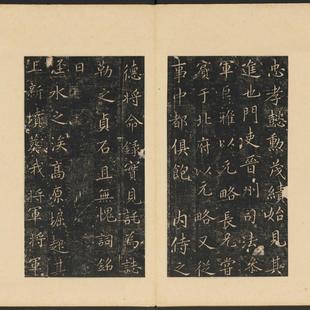 忠孝懿勳茂績始見其
進也門吏晉州司法參
軍貞雅以元略長兄嘗
賓于北府以元略又從
事中都俱飽 內侍之
德將命錄實見託為誌
勒之貞石且無愧詞銘
曰
滻水之涘高原堀起其
上新墳藏我將軍將軍